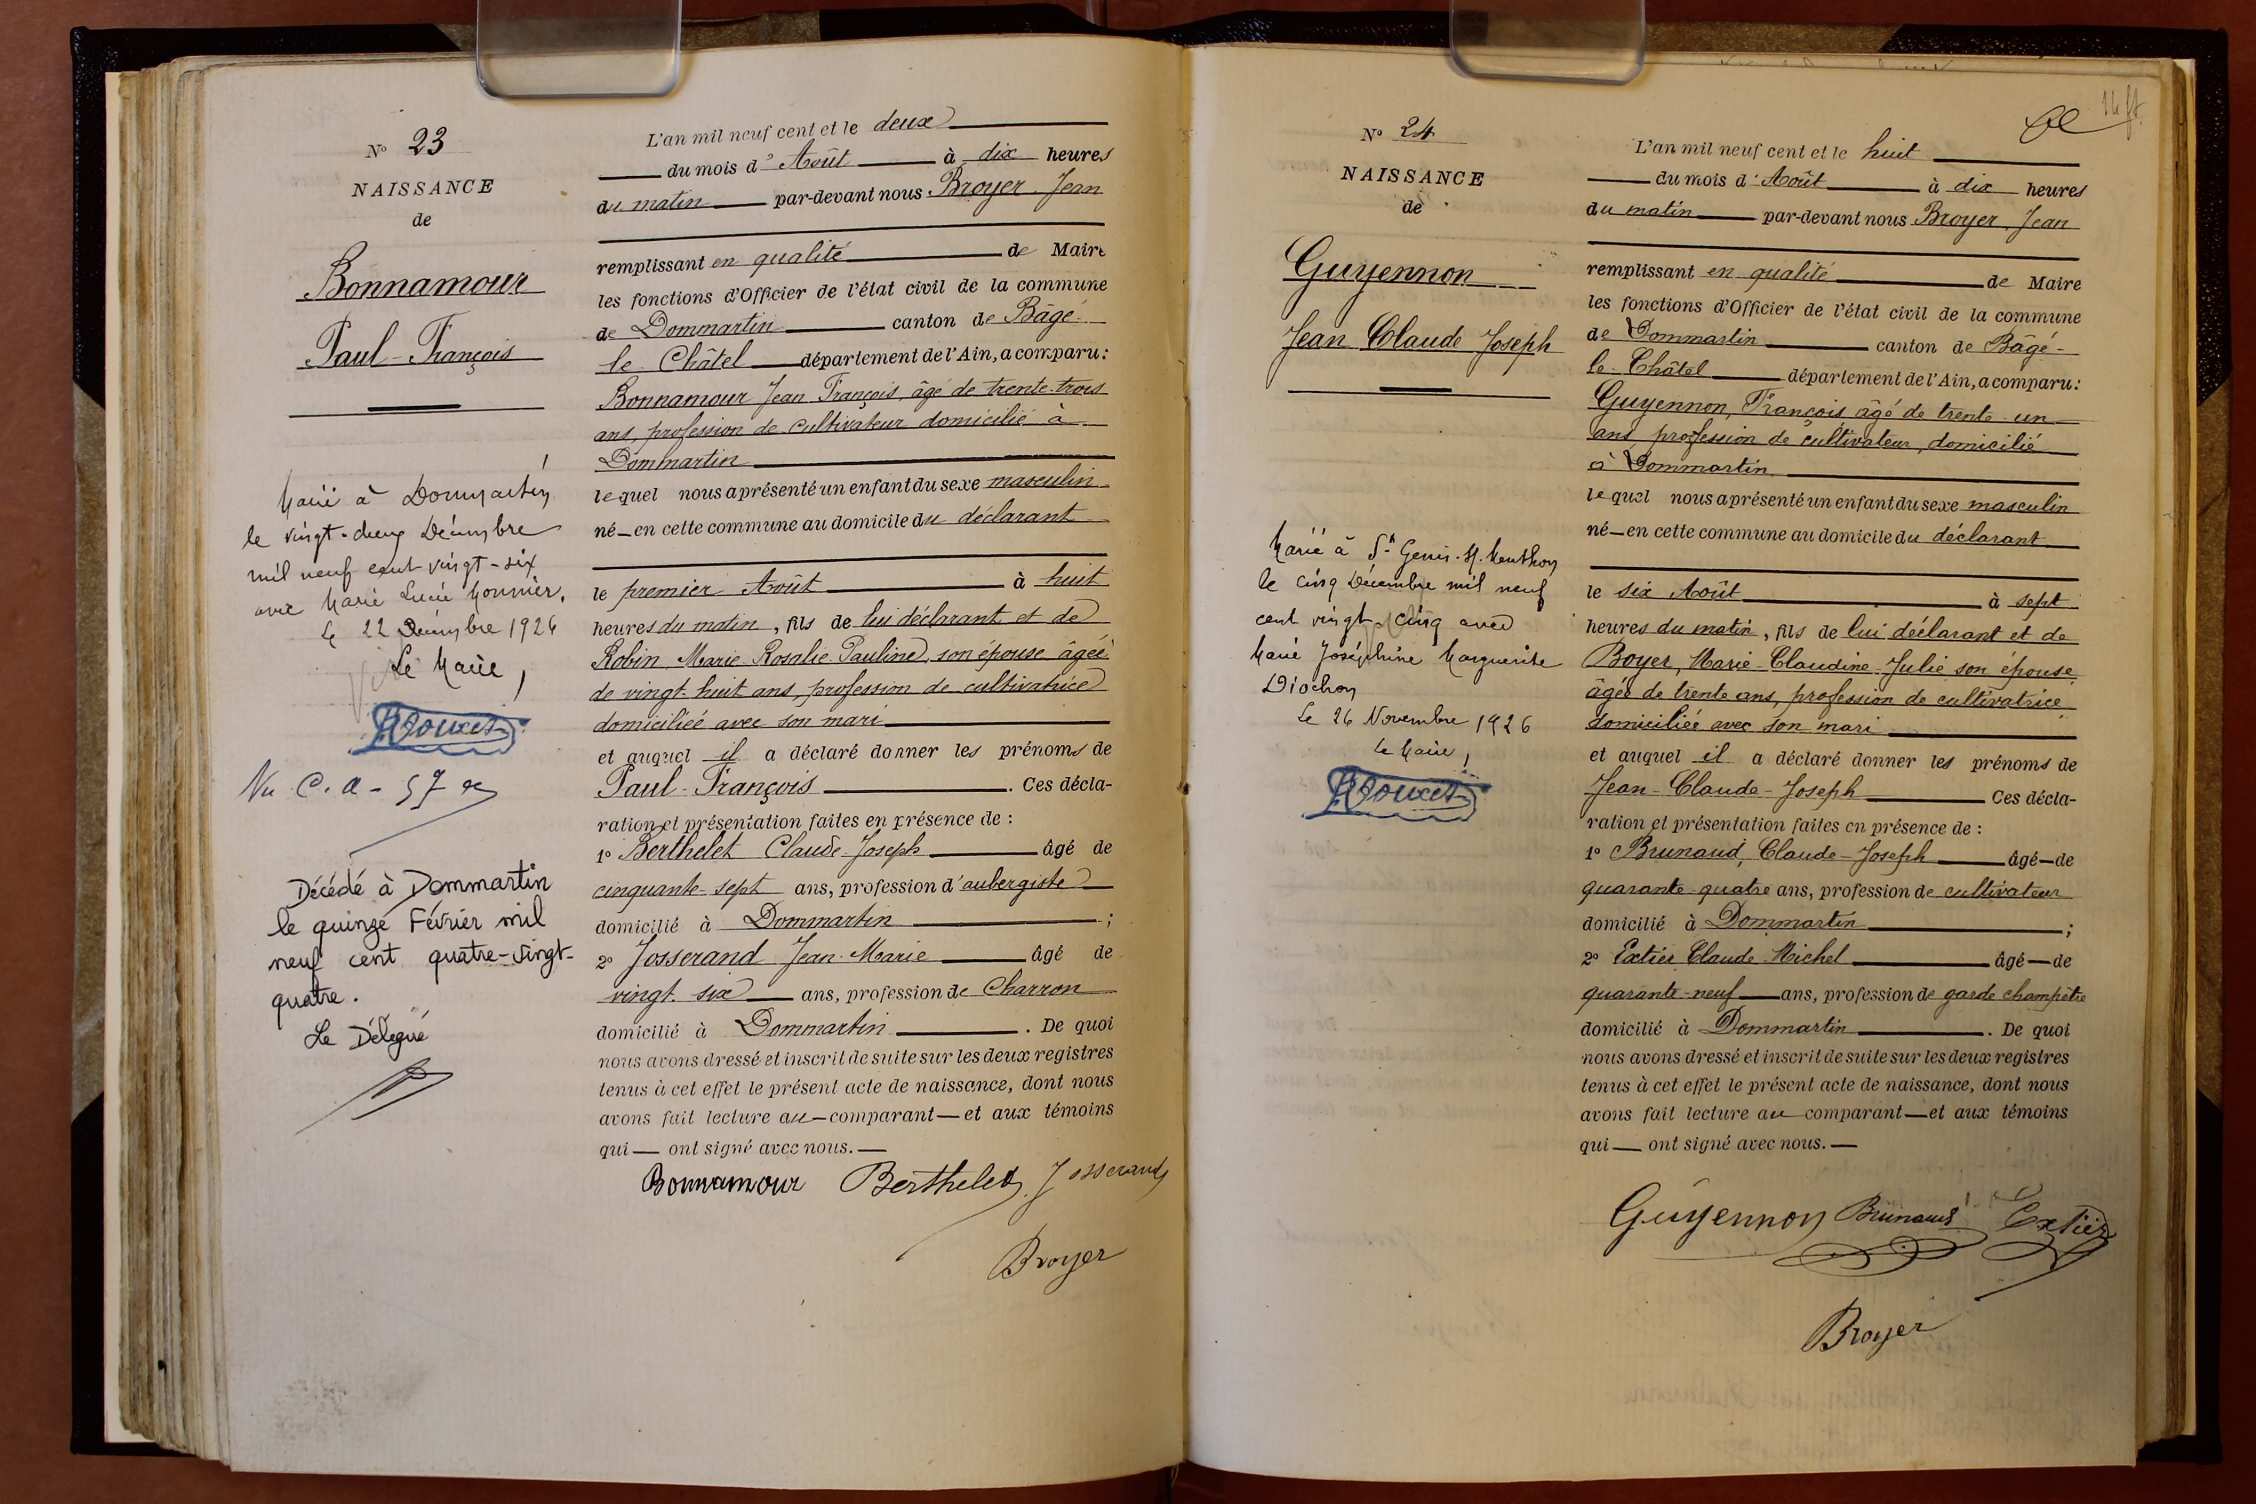 N° 23
NAISSANCE
de
Bonnamour
Paul-François
Marié à Dommartin
le vingt-deux Décembre
mil neuf cent vingt-six
avec Marie Lucie Monnier.
Le 22 Décembre 1926
Le Maire,
Vu C.A - 57
Décédé à Dommartin
le quinze Février mil
neuf cent quatre-vingt-
quatre.
Le Délégué
L'an mil neuf cent et le deux
du mois d'Août à dix heures
du matin par-devant nous Broyer Jean
remplissant en qualité de Maire
les fonctions d'Officier de l'état civil de la commune
de Dommartin canton de Bâgé-
le-Châtel département de l'Ain, a comparu:
Bonnamour Jean François, âgé de trente-trois
ans, profession de cultivateur domicilié à
Dommartin
lequel nous a présenté un enfant du sexe masculin
né-en cette commune au domicile du déclarant
le premier Août à huit
heures du matin, fils de lui déclarant et de
Robin Marie Rosalie Pauline, son épouse âgée
de vingt huit ans, profession de cultivatrice
domiciliée avec son mari
et auquel il a déclaré donner les prénoms de
Paul-François. Ces décla-
ration et présentation faites en présence de:
1° Berthelet Claude Joseph âgé de
cinquante-sept ans, profession d'aubergiste
domicilié à Dommartin;
2° Josserand Jean-Marie âgé de
vingt six ans, profession de Charron
domicilié à Dommartin. De quoi
nous avons dressé et inscrit de suite sur les deux registres
tenus à cet effet le présent acte de naissance, dont nous
avons fait lecture au-comparant-et aux témoins
qui-ont signé avec nous.-
Bonnamour Berthelet Josserand
Broyer
14 ft
N° 24
NAISSANCE
de
Guyennon
Jean Claude Joseph
Marié à St Genis-s/-Menthon
le cinq Décembre mil neuf
cent vingt-cinq avec
Marie Joséphine Marguerite
Diochon
Le 26 Novembre 1926
Le Maire,
L'an mil neuf cent et le huit
du mois d'Août à dix heures
du matin par-devant nous Broyer Jean
remplissant en qualité de Maire
les fonctions d'Officier de l'état civil de la commune
de Dommartin canton de Bâgé-
le-Châtel département de l'Ain, a comparu:
Guyennon, François âgé de trente-un
ans, profession de cultivateur, domicilié
à Dommartin
lequel nous a présenté un enfant du sexe masculin
né-en cette commune au domicile du déclarant
le six Août à sept
heures du matin, fils de lui déclarant et de
Boyer, Marie-Claudine-Julie son épouse
âgée de trente ans, profession de cultivatrice
domiciliée avec son mari
et auquel il a déclaré donner les prénoms de
Jean-Claude-Joseph Ces décla-
ration et présentation faites en présence de:
1° Brunaud, Claude-Joseph âgé-de
quarante-quatre ans, profession de cultivateur
domicilié à Dommartin;
2° Extier Claude Michel âgé-de
quarante-neuf ans, profession de garde champêtre
domicilié à Dommartin. De quoi
nous avons dressé et inscrit de suite sur les deux registres
tenus à cet effet le présent acte de naissance, dont nous
avons fait lecture au comparant-et aux témoins
qui-ont signé avec nous.-
Guyennon Brunaud Extier
Broyer